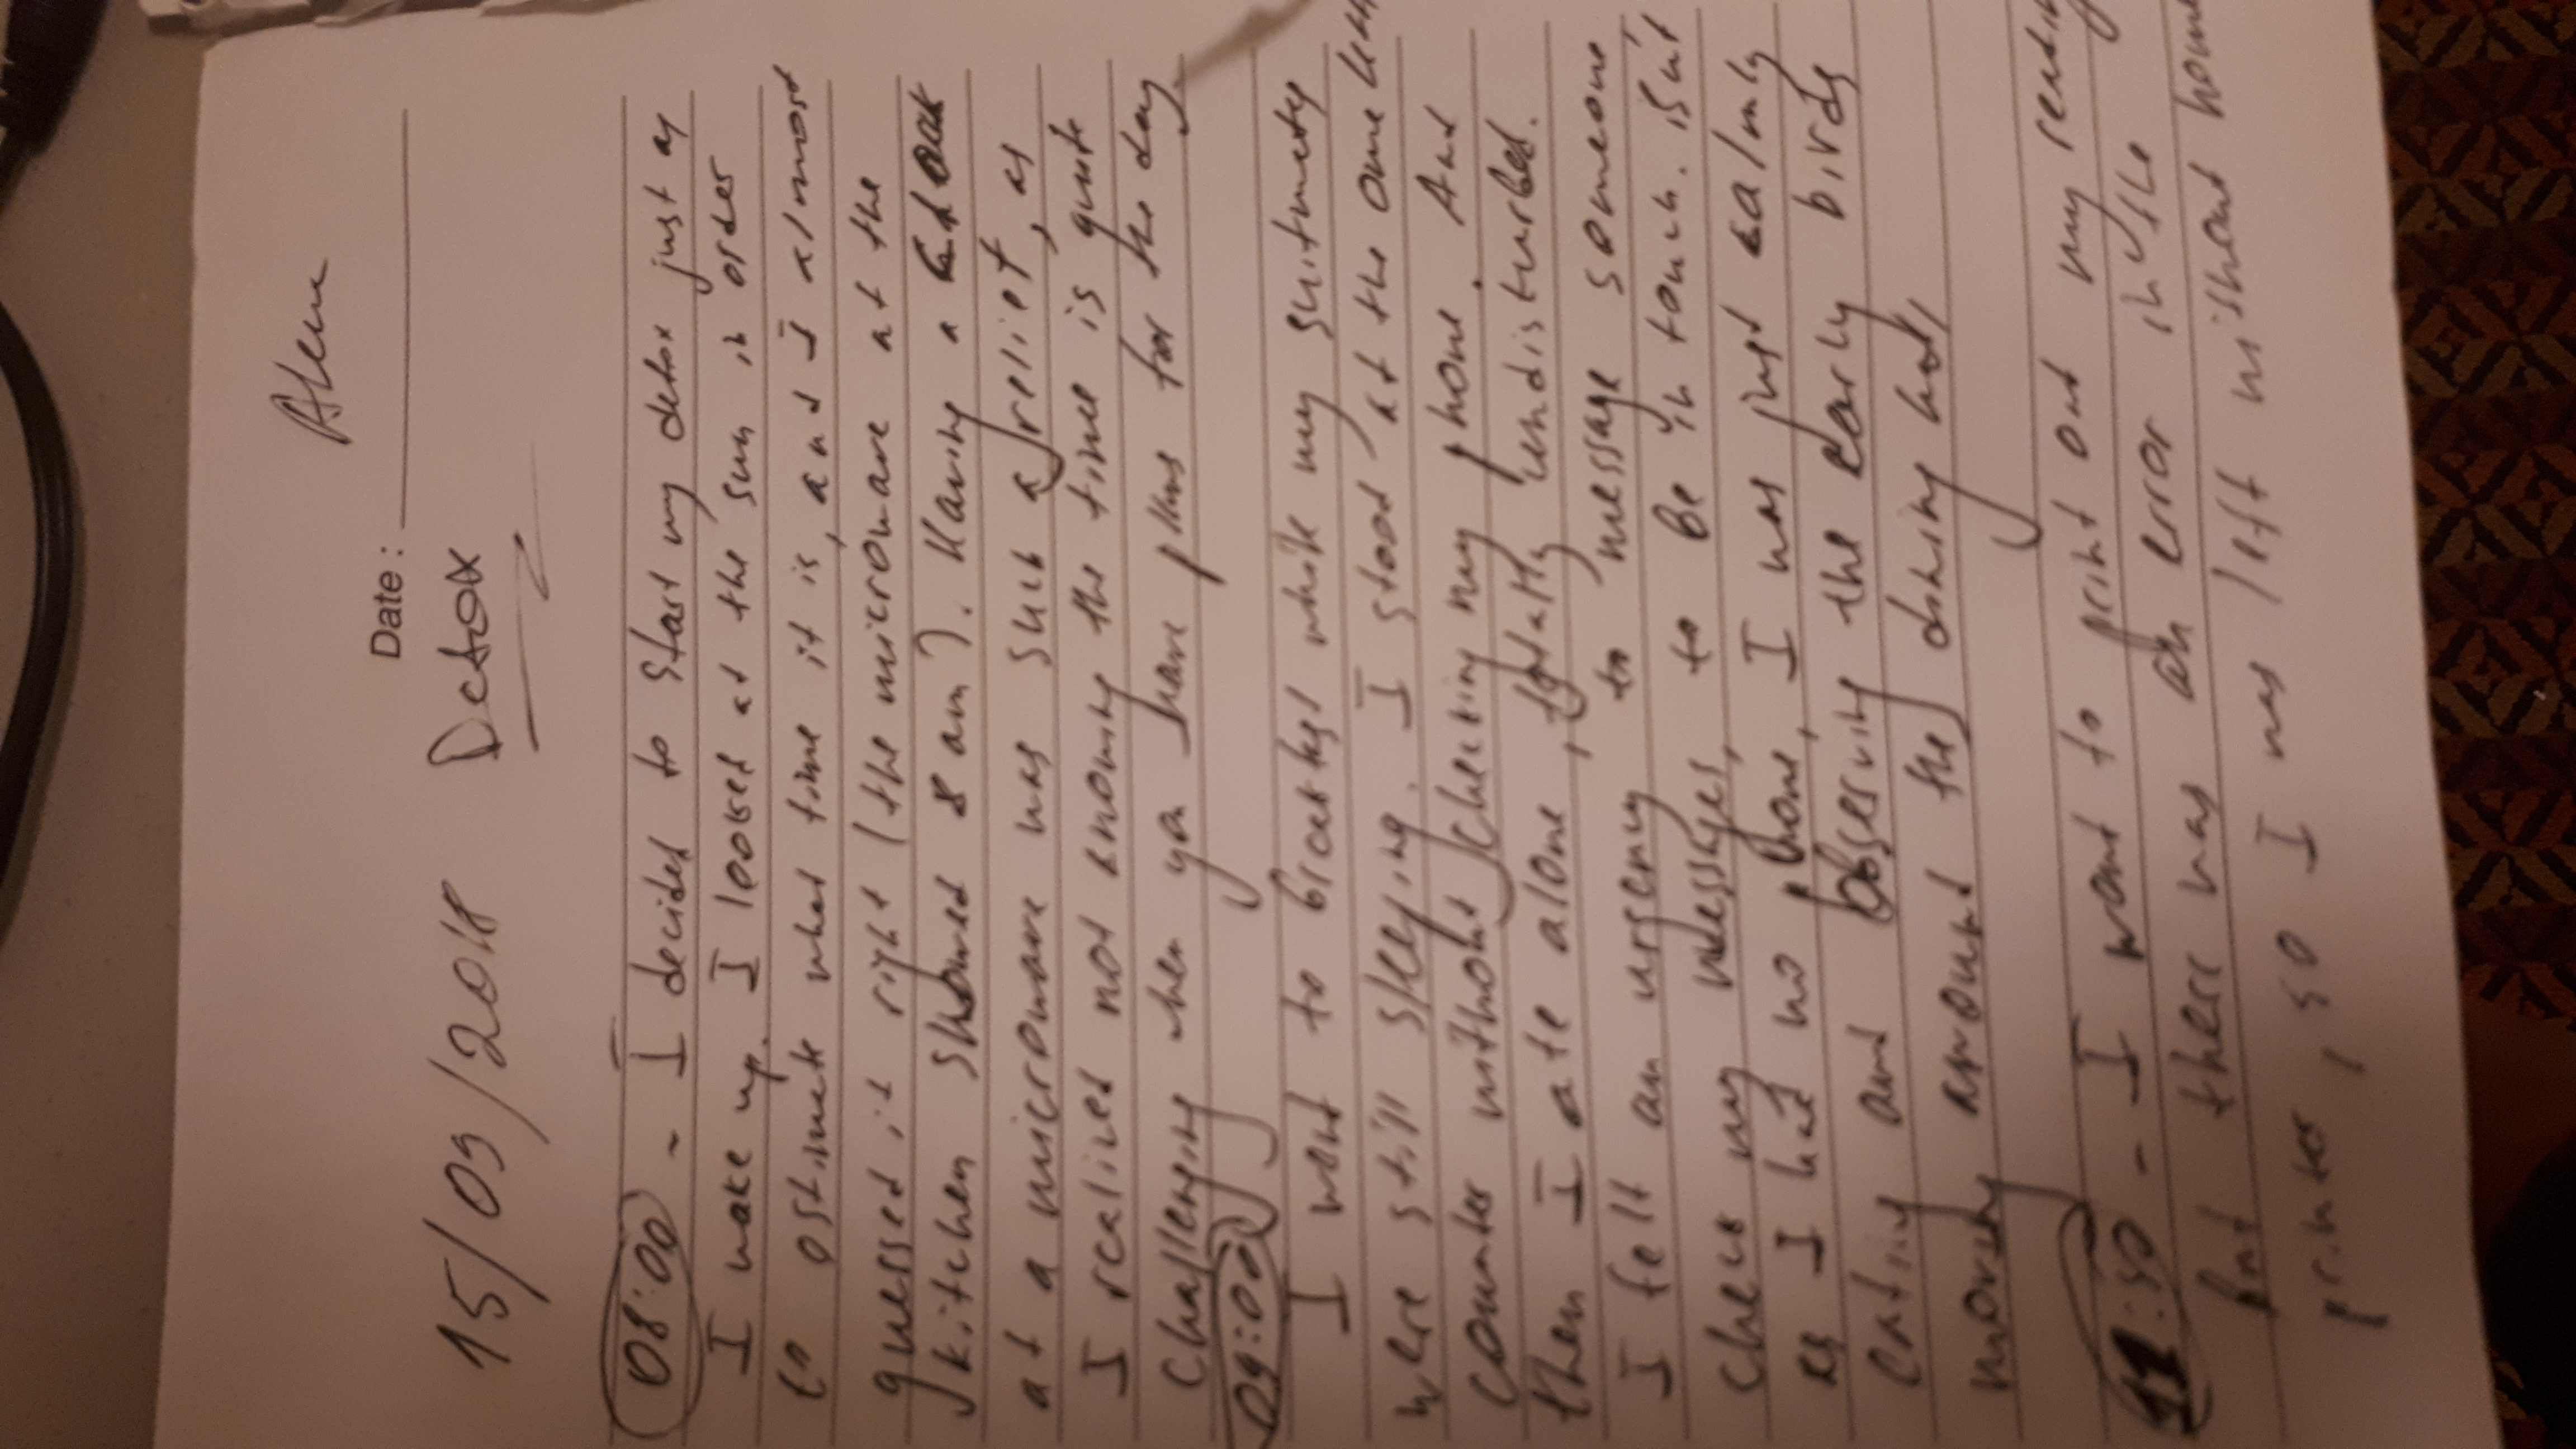 Alem
Date :
15/09/2018 Detox
08:00 - I decided to start my detox just as
I wake up. I looked at the sun in order
to estimate what time it is, and I almost
guessed it right (the microwave at the
kitchen showed 8 am). Having a clock
at a microwave was such a relief, as
I realized not knowing the time is quite
challenging when you have plans for the day.
09:00
I went to breakfast while my suitmates
were still sleeping. I stood at the omelette
counter without checking my phone. And
then I ate alone, totally undisturbed.
I felt an urgency to message someone,
check my messages, to be in touch. isut
as I had no phone, I was just calmly
eating and observing the early birds
around the dining hall,
morning
11:50 - I went to print out my reading
but there was an error in the
printer, so I was left without home